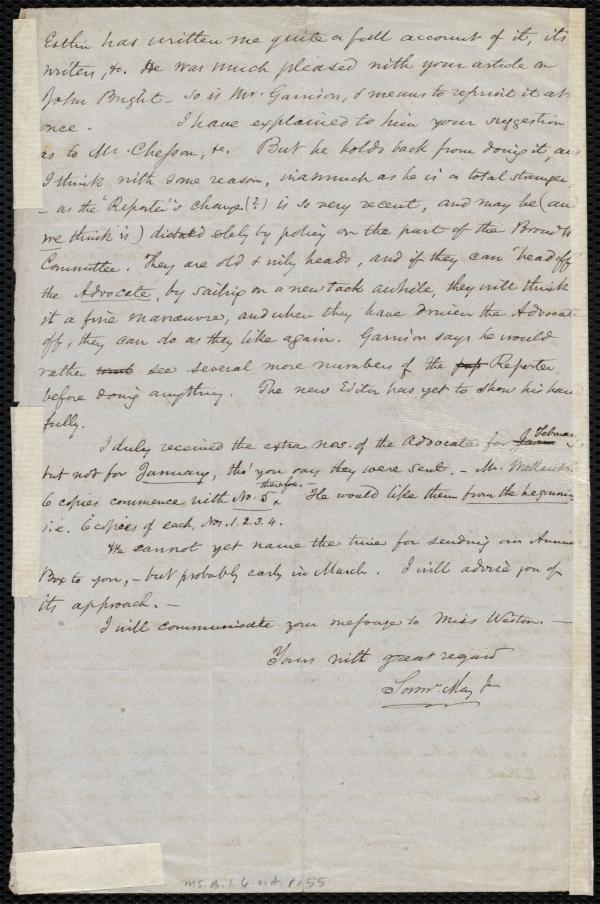 Estlin has written me quite a full account of it, its
writers, &c. He was much pleased with your article on
John Bright - so is Mr. Garrison, & means to reprint it at
once. I have explained to him your suggestion
as to Mr. Chesson, &c. But he holds back from doing it, and
I think with some reason, inasmuch as he is a total stranger,
- as the "Reporter"'s change (?) is so very recent, and may be (and
we think is) dictated solely by policy on the part of the Broad St
Committee. They are old & wily heads, and if they can "head off"
the Advocate, by sailing on a new tack awhile, they will think
it a fine manœuvre, and when they have driven the Advocate
off, they can do as they like again. Garrison says he would
rather see several more numbers of the Reporter
before doing anything. The new Editor has yet to show his hand
fully.
I duly received the extra nos. of the Advocate for Janu February,
but not for January, tho' you say they were sent. - Mr. Wallcut's
6 copies commence with No. 5, therefore. - He would like them from the beginning
i.e. 6 copies of each, Nos. 1. 2. 3. 4.
We cannot yet name the time for sending our Annual
Box to you, - but probably early in March. I will advise you of
its approach. -
I will communicate your message to Miss Weston. -
Yours with great regard
Saml. May Jr
Ms. B. 1. 6 v. 4. p. 55